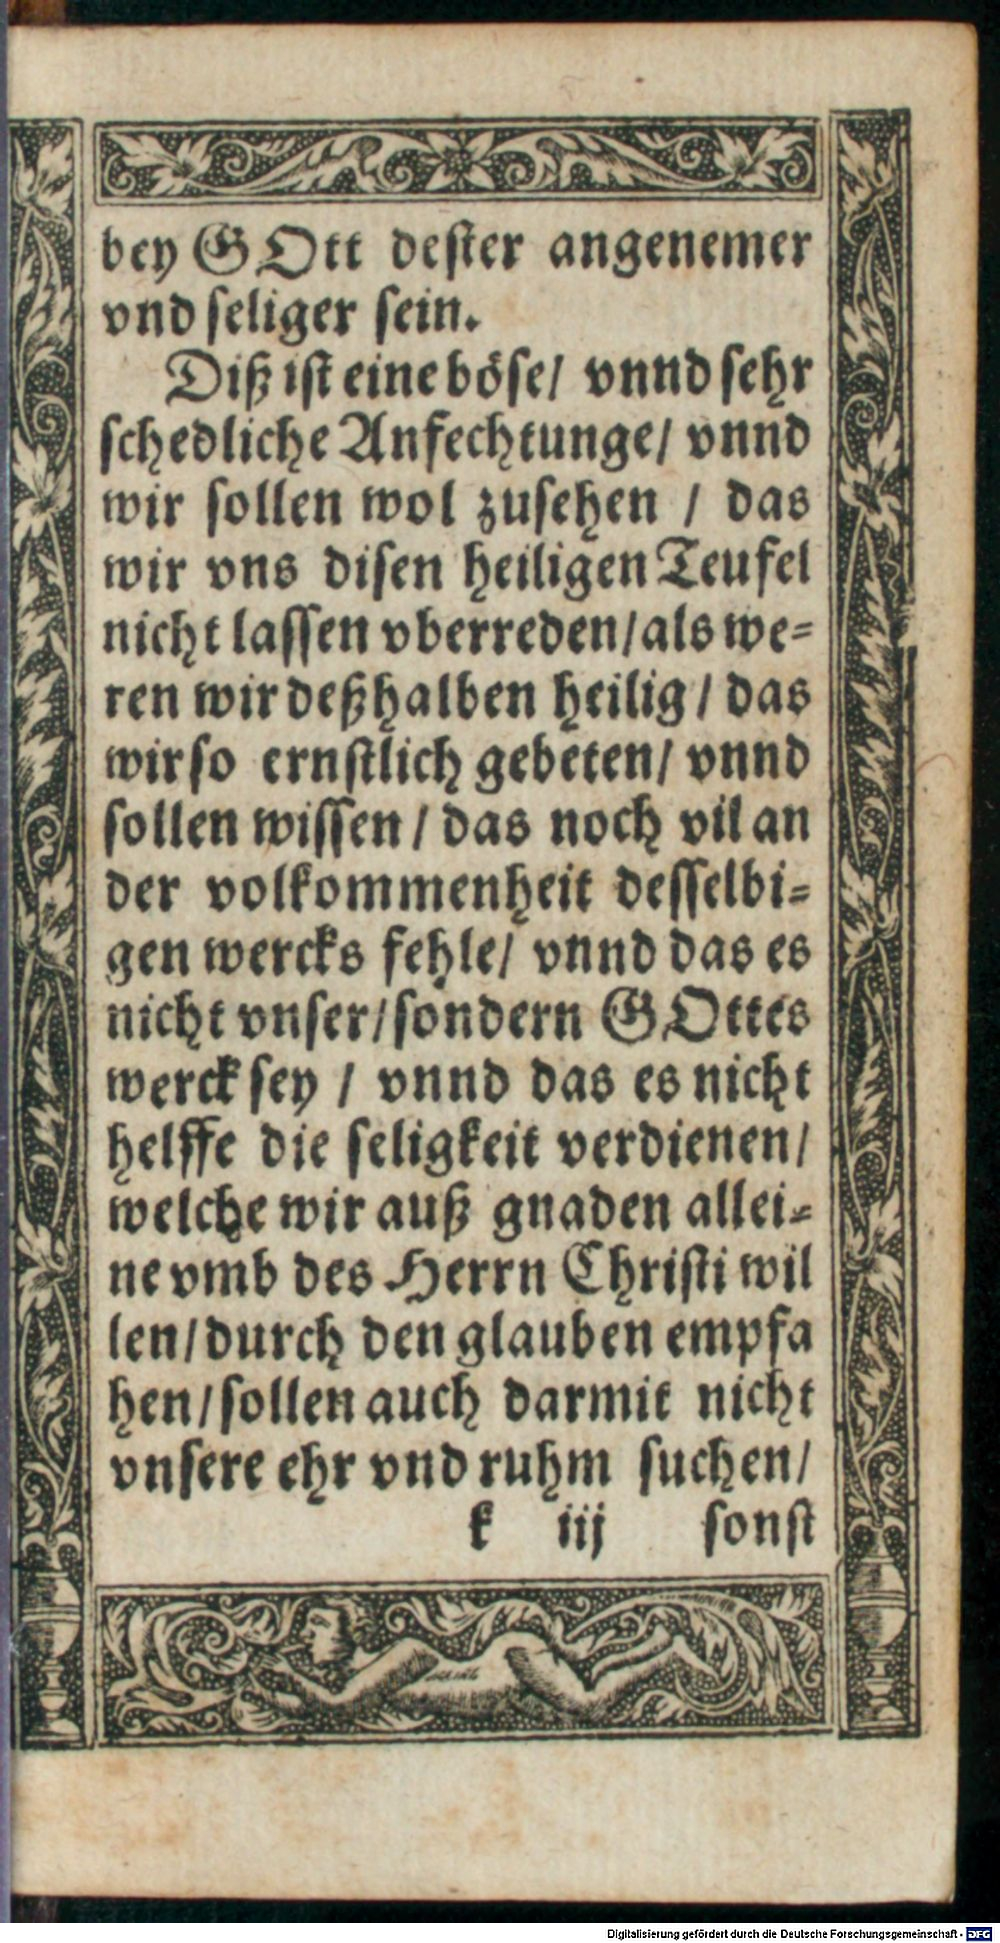 bey GOtt dester angenemer
vnd seliger sein.
Diß ist eine böse/ vnnd sehr
schedliche Anfechtunge/ vnnd
wir sollen wol zusehen / das
wir vns disen heiligen Teufel
nicht lassen vberreden/als we-
ren wir deßhalben heilig/ das
wir so ernstlich gebeten/ vnnd
sollen wissen/ das noch vil an
der volkommenheit desselbi-
gen wercks fehle/ vnnd das es
nicht vnser/sondern GOttes
werck sey / vnnd das es nicht
helffe die seligkeit verdienen/
welche wir auß gnaden allei-
ne vmb des Herrn Christi wil
len/durch den glauben empfa
hen/sollen auch darmit nicht
vnsere ehr vnd ruhm suchen/
k iij sonst
Digitalisierung gefördert durch die Deutsche Forschungsgemeinschaft - DFG